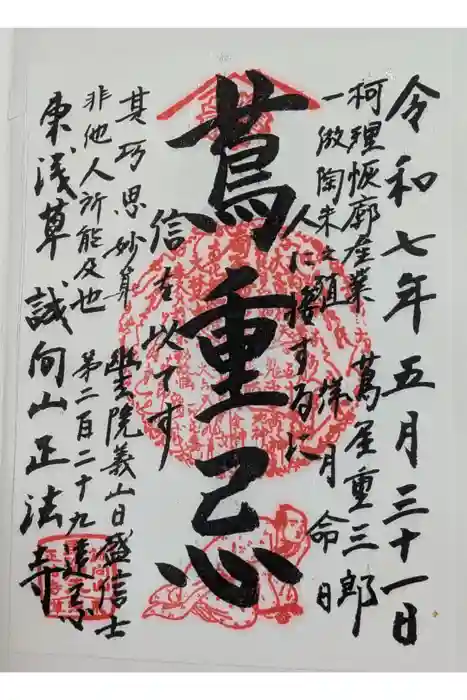 令和七年五月三十一日
蔦屋重三郎
祥月命日
柯理恢廓産業
一倣陶朱之殖
人に接するに
蔦重忌
信を以てす
其巧思妙算
非他人所能及也
幽玄院義山日盛信士
第二百二十九遠忌
東浅草 誠向山正法寺